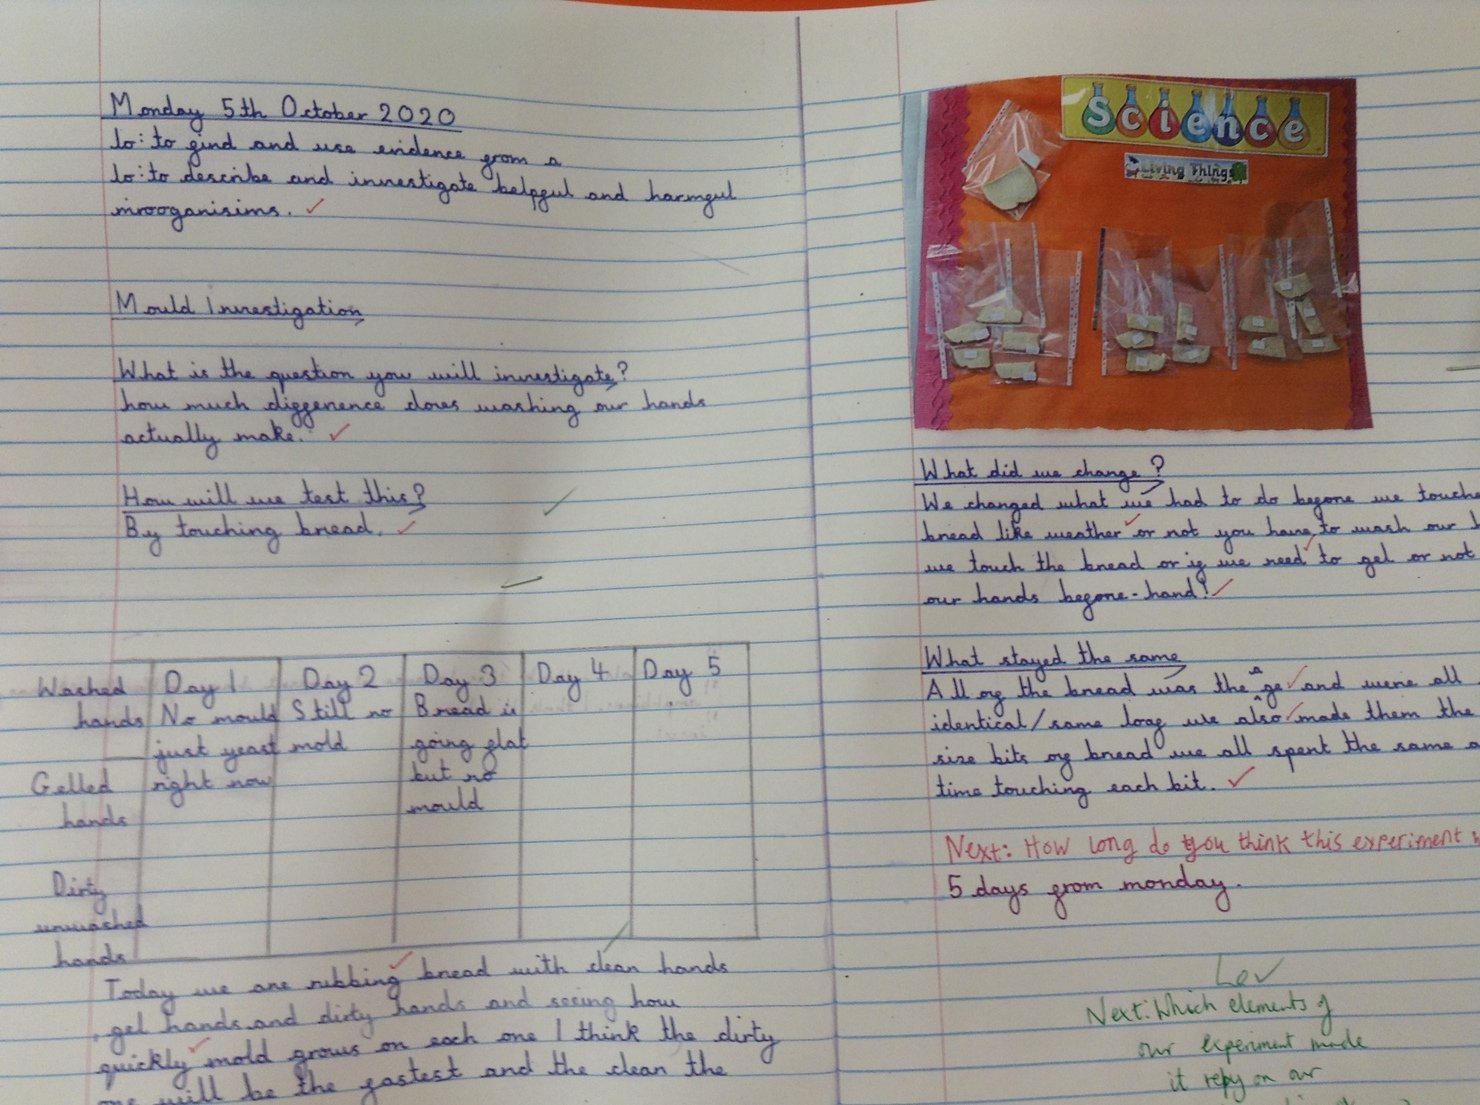 Monday 5th October 2020
lo: to find and use evidence from a
lo: to describe and investigate helpful and harmful
mrooganisims.
Mould Investigation
What is the question you will investigate?
how much difference does washing our hands
actually make.
How will we test this?
By touching bread.
Washed hands
Day 1
Day 2
Day 3
Day 4
Day 5
No mould just yeast right now
Still no mold
Bread is going flat but no mould
Gelled hands
Dirty unwashed hands
Today we are rubbing bread with clean hands
, gel hands and dirty hands and seeing how
quickly mold grows on each one I think the dirty
one will be the fastest and the clean the
Science
Living Things
What did we change?
We changed what we had to do before we touche
bread like weather or not you have to wash our h
we touch the bread or if we need to gel or not
our hands before-hand!
What stayed the same
All of the bread was the age and were all
identical/same loaf we also made them the
size bits of bread we all spent the same a
time touching each bit.
Next: How long do you think this experiment
5 days from monday.
Lo✓
Next: Which elements of
our experiment made
it rely on our